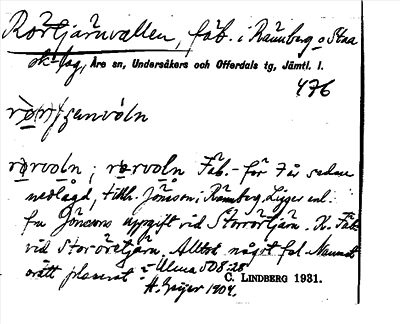 Rörtjärnvallen, fäb. i Rännberg o Staa
sk°lag, Åre sn, Undersåkers och Offerdals tg, Jämtl. l.
476
rörvoln; rørvoln Fäb. för 7 år sedan
nedlagd, tillh. Jönsson i Rännberg. Ligger enl.
fru Jönssons uppgift vid Storrörtjärn. K. Fäb
vid Stor-öretjärn. Alltså något fel. Namnet
orätt placerat? – Ulma 508:28
C. LINDBERG 1931.
H. Geijer 1904.